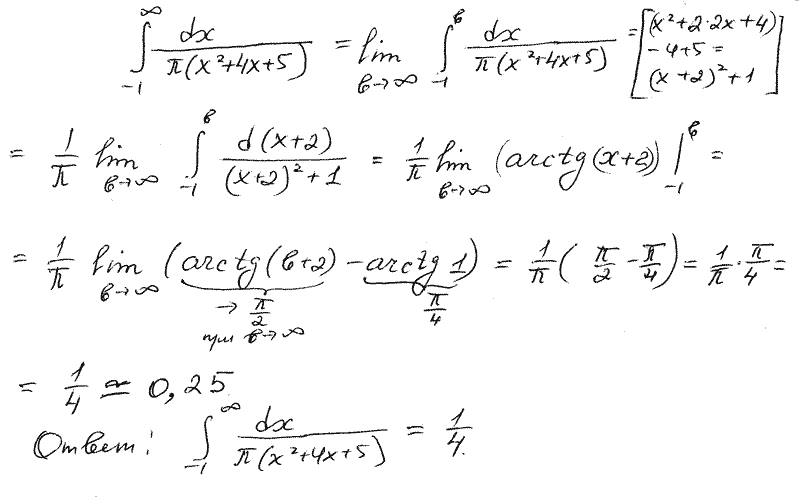 ∫_{-1}^{∞} dx / π(x²+4x+5) = lim_{b→∞} ∫_{-1}^{b} dx / π(x²+4x+5) = [(x²+2·2x+4) -4+5 = (x+2)²+1]
= 1/π lim_{b→∞} ∫_{-1}^{b} d(x+2) / (x+2)²+1 = 1/π lim_{b→∞} (arctg(x+2)) |_{-1}^{b} =
= 1/π lim_{b→∞} (arctg(b+2) - arctg 1) = 1/π (π/2 - π/4) = 1/π · π/4 =
→ π/2 π/4
при b→∞
= 1/4 ≃ 0,25
Ответ: ∫_{-1}^{∞} dx / π(x²+4x+5) = 1/4.